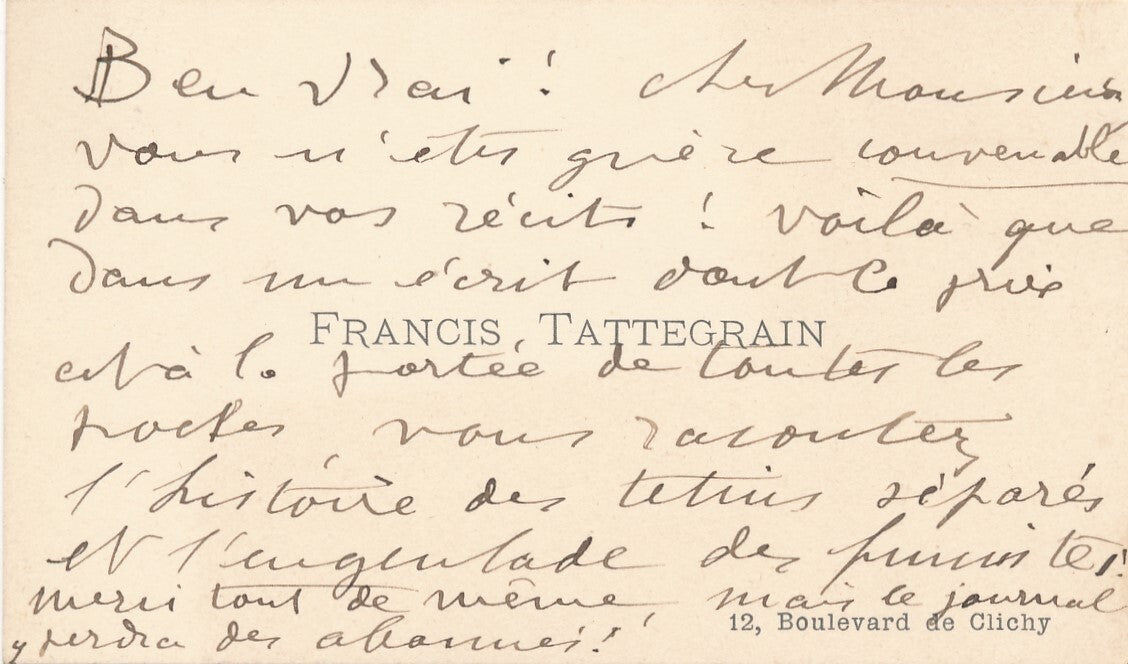 Ben vrai ! cher Monsieur
vous n'etes guère convenable
dans vos récits ! voilà que
dans un écrit dont le prix
FRANCIS TATTEGRAIN
est à la portée de toutes les
poches vous racontez
l'histoire des tetins séparés
et l'engeulade des fumistes !
merci tout de même, mais le journal
12, Boulevard de Clichy
y perdra des abonnés !